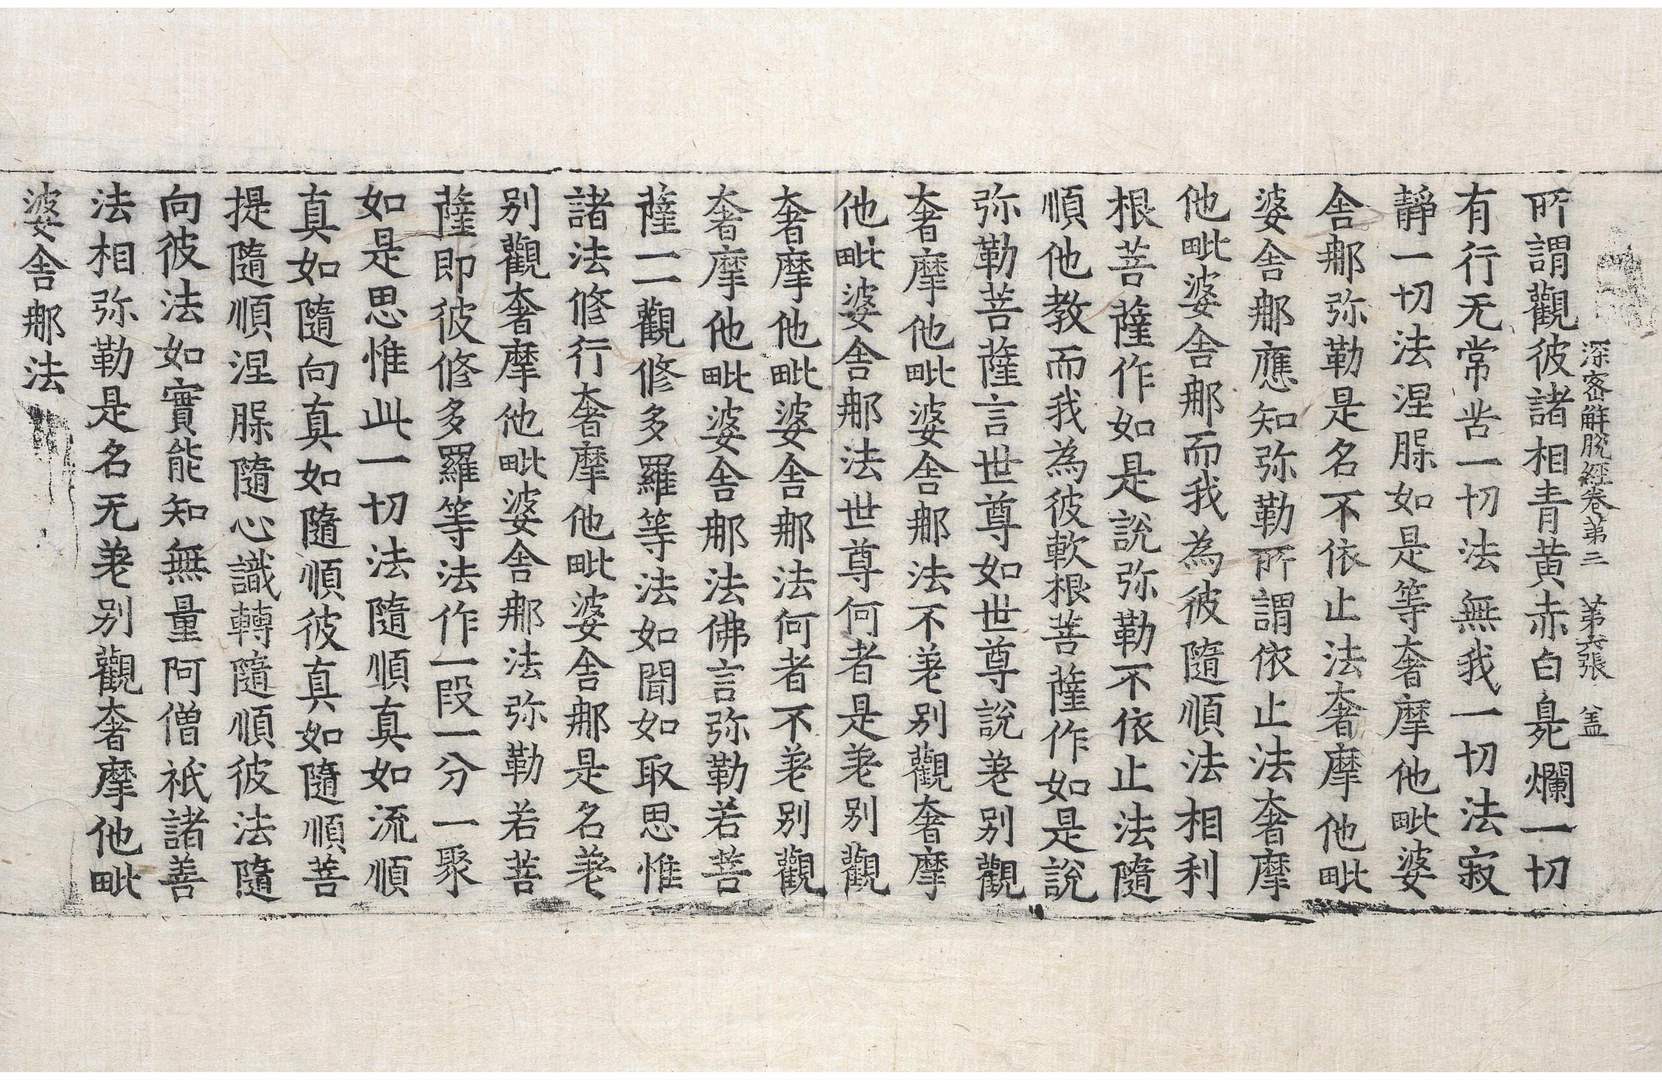 深密解脫經卷第三　第六張　盖
所謂觀彼諸相青黄赤白臰爛一切
有行无常苦一切法無我一切法寂
静一切法涅𦝫如是等奢摩他毗婆
舍𨙻弥勒是名不依止法奢摩他毗
婆舍𨙻應知弥勒所謂依止法奢摩
他毗婆舍𨙻而我為彼隨順法相利
根菩薩作如是說弥勒不依止法隨
順他教而我為彼軟根菩薩作如是說
弥勒菩薩言世尊如世尊說差别觀
奢摩他毗婆舍𨙻法不差别觀奢摩
他毗婆舍𨙻法世尊何者是差别觀
奢摩他毗婆舍𨙻法何者不差别觀
奢摩他毗婆舍𨙻法佛言弥勒若菩
薩一一觀修多羅等法如聞如取思惟
諸法修行奢摩他毗婆舍𨙻是名差
别觀奢摩他毗婆舍𨙻法弥勒若菩
薩即彼修多羅等法作一段一分一聚
如是思惟此一切法隨順真如流順
真如隨向真如隨順彼真如隨順菩
提隨順涅𦝫隨心識轉隨順彼法隨
向彼法如實能知無量阿僧祇諸善
法相弥勒是名无差别觀奢摩他毗
婆舍𨙻法